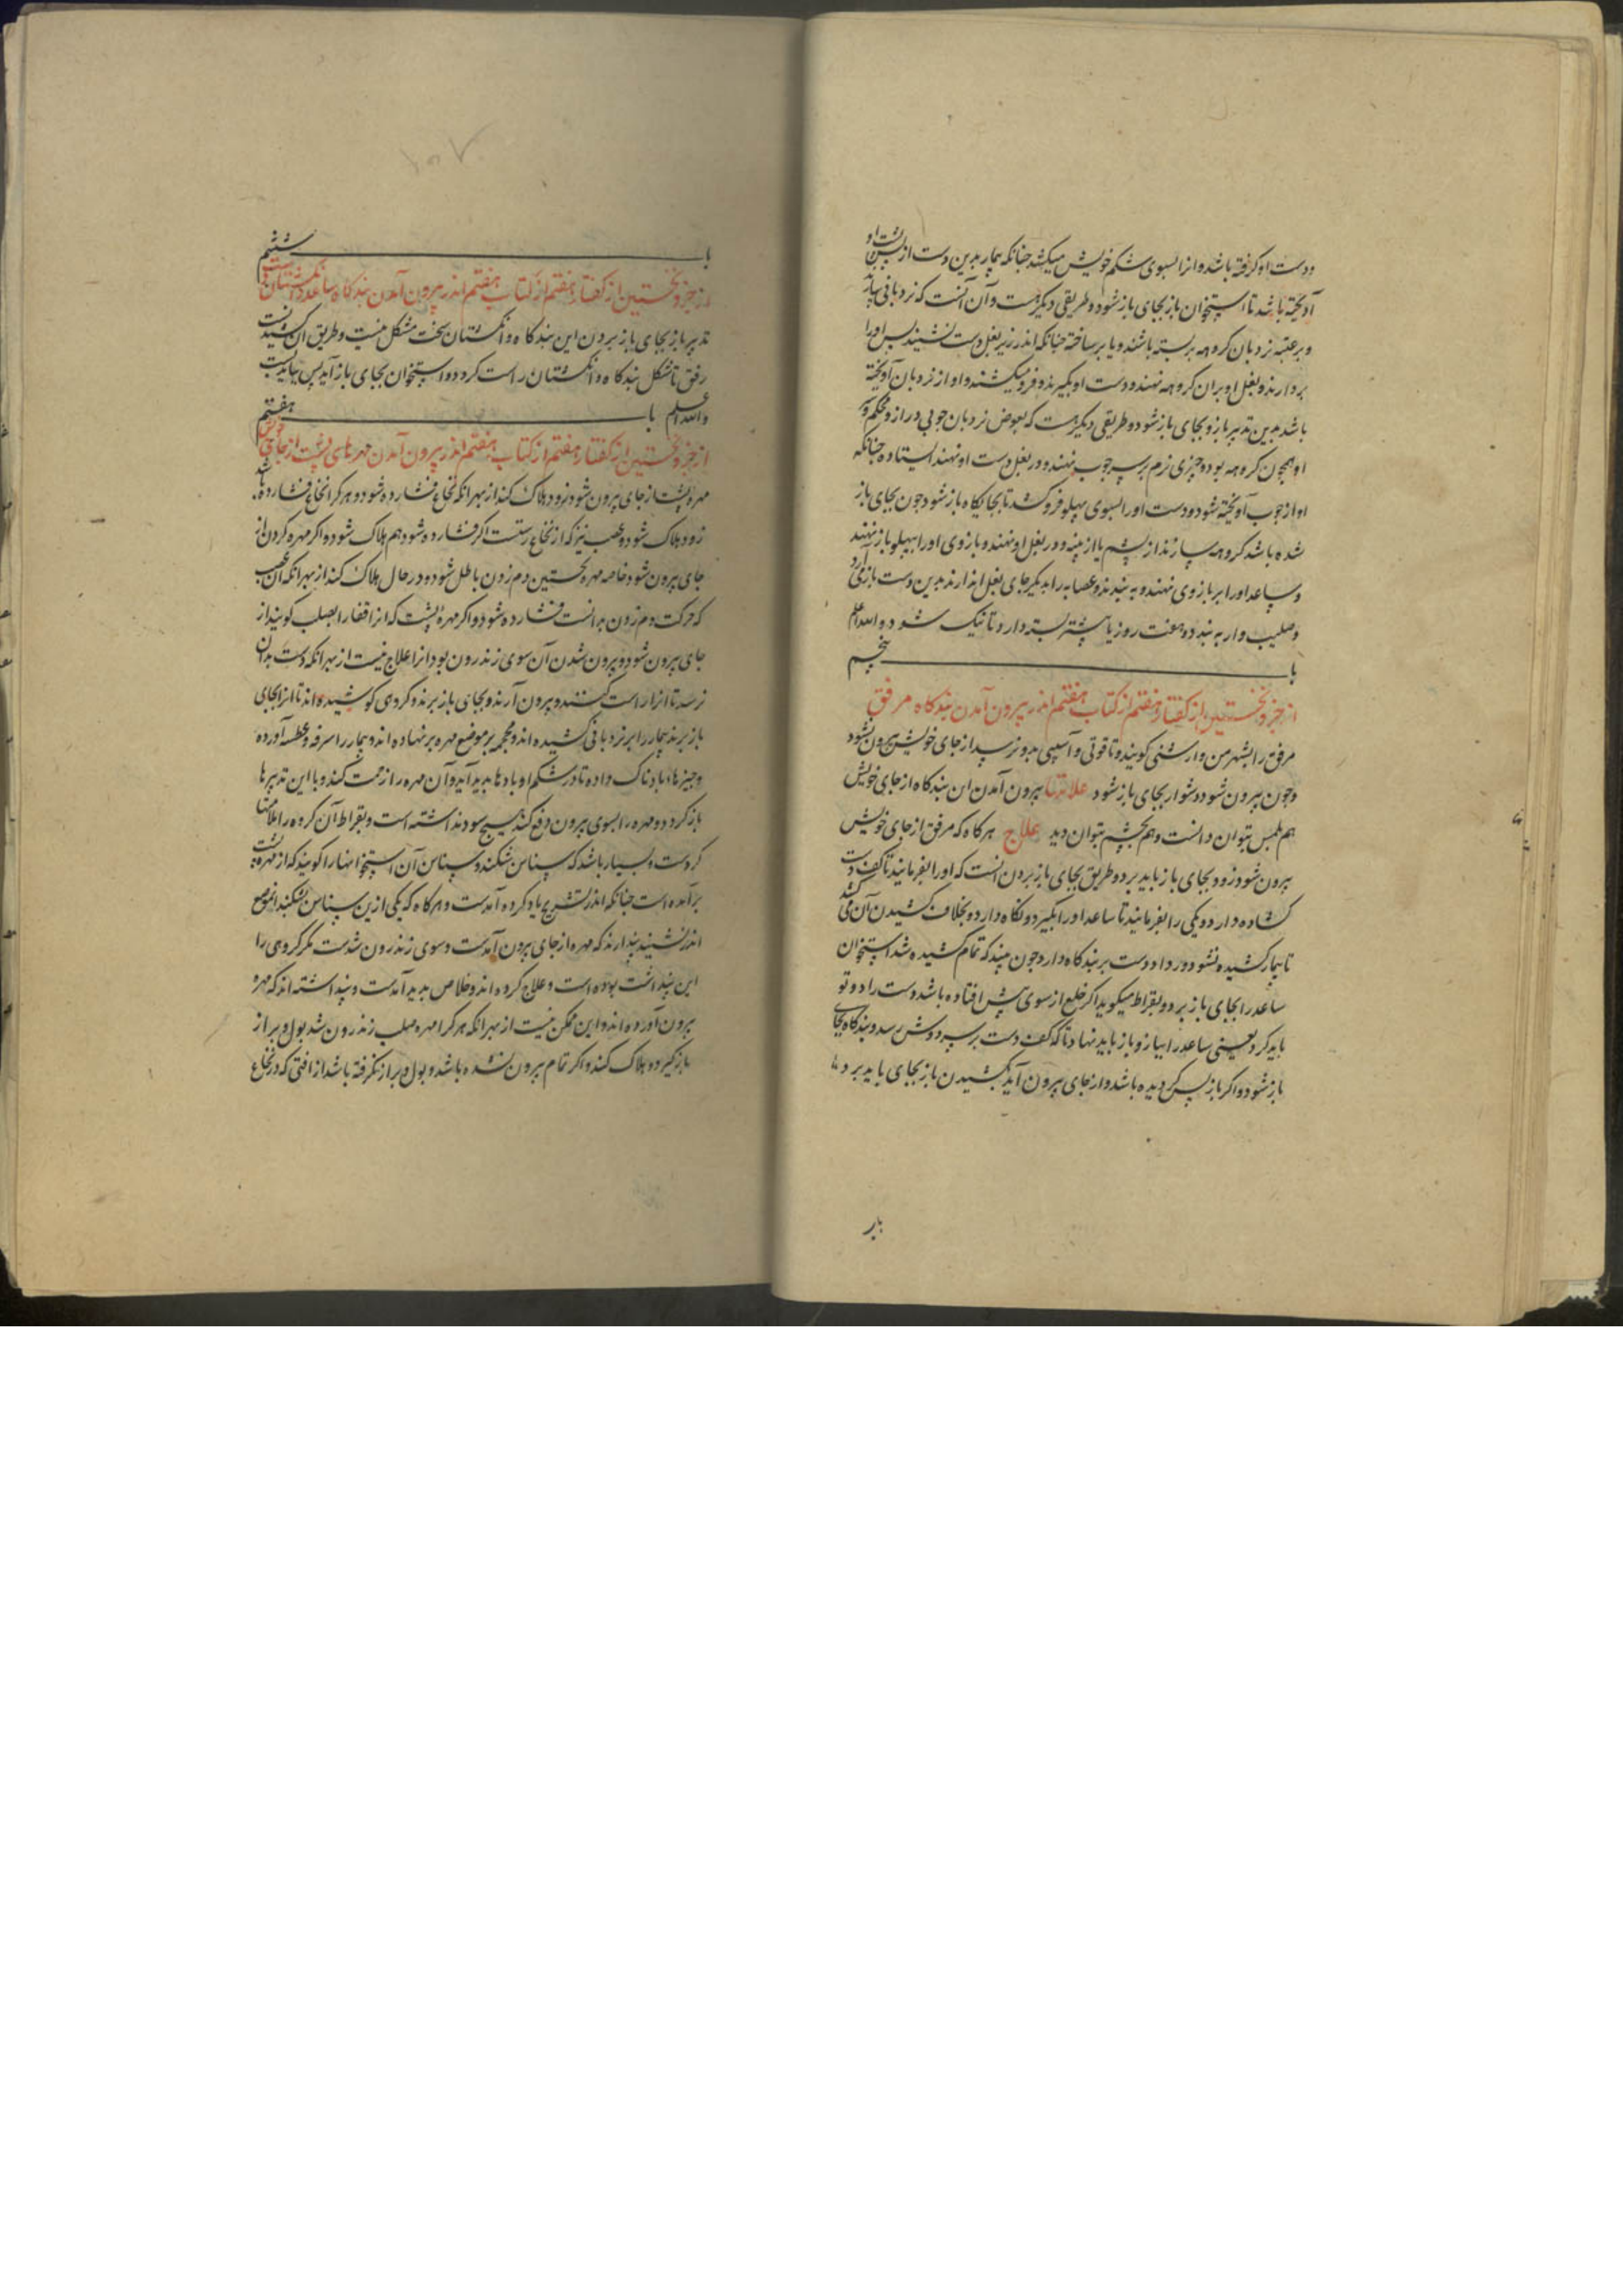 ودست او کرفته باشد وانرا بسوی شکم خویش میکشد جنانکه بیمار بدین دست از پس پشت او
آویخته باشد تا استخوان باز بجای باز شود وطریقی دیکرست وآن آنست که نردبانی بیارند
وبر عتبه نردبان کروهه بر بسته باشند ویا بر ساخته جنانکه اندر زیر بغل دست نشیند پس اورا
بردارند وبغل او بران کروهه نهند ودست او بکیرند وفرو میکشند واو از نردبان آویخته
باشد بدین تدبیر بازو بجای باز شود وطریقی دیکرست که بعوض نردبان جوبی دراز ومحکم وسر
او همجون کروهه بود وجیزی نرم بر سر جوب نهند ودر بغل دست او نهند ایستاده جنانکه
او از جوب آویخته شود ودست اورا بسوی پهلو فرو کشد تا بجایکاه باز شود جون بجای باز
شده باشد کروهه سازند از پشم یا از پنبه ودر بغل او نهند وبازوی اورا بپهلو باز نهند
وساعد اورا بر بازوی نهند وبه بندند وعصابه را بدیکر جای بغل اندارند بدین دست باز می آرد
وصلیب وار به بندد وهفت روز یا بیشتر بسته دارد تا نیک شود والله اعلم
باب پنجم
از جزو نخستین از کفتار هفتم از کتاب هفتم اندر بیرون آمدن بندکاه مرفق
مرفق را بشهر من وارشنی کویند وتا قوتی وآسیبی بدو نرسد از جای خویش بیرون نشود
وجون بیرون شود دشوار بجای باز شود علامتها بیرون آمدن این بندکاه از جای خویش
هم بلمس بتوان دانست وهم بچشم بتوان دید علاج هرکاه که مرفق از جای خویش
بیرون شود زود بجای باز باید برد وطریق بجای باز بردن آنست که اورا بفرمایند تا کف دست
کشاده دارد ویکی را بفرمایند تا ساعد اورا بکیرد ونکاه دارد وبخلاف کشیدن آن می کشد
تا بیمار کشیده نشود ودرد او دست بر بندکاه دارد جون بیند که تمام کشیده شد استخوان
ساعد را بجای باز برد وبقراط میکوید اکر خلع از سوی پیش افتاده باشد دست را دو تو
باید کرد یعنی ساعد را ببازو باز باید نهاد تا که کف دست بر سر دوش رسد وبندکاه بجای
باز شود واکر باز پس کردیده باشد واز جای بیرون آید بکشیدن باز بجای باید برد
بار
باب ششم
از جزو نخستین از کفتار هفتم از کتاب هفتم اندر بیرون آمدن بندکاه ساعد وانکشتان دست
تدبیر باز بجای باز بردن این بندکاه وانکشتان سخت مشکل نیست وطریق آن کشیدنست
برفق تا شکل بندکاه وانکشتان راست کردد واستخوان بجای باز آید پس بباید بست
والله اعلم باب هفتم
از جزو نخستین از کفتار هفتم از کتاب هفتم اندر بیرون آمدن مهرهای پشت از جای خویش
مهره پشت از جای بیرون شود زود هلاک کند از بهر انکه نخاع فشارده شود وهر کرا نخاع فشارده باشد
زود هلاک شود وعصب نیز که از نخاع رستست اکر فشارده شود هم هلاک شود واکر مهره کردن از
جای بیرون شود خاصه مهره نخستین دم زدن باطل شود ودر حال هلاک کند از بهر انکه آن عصب
که حرکت دم زدن بدانست فشارده شود واکر مهره پشت که انرا فقار الصلب کویند از
جای بیرون شود وبیرون شدن آن سوی زندرون بود انرا علاج نیست از بهر انکه دست بدان
نرسد تا انرا راست کنند وبیرون آرند وبجای باز برند وکروهی کوشیده اند تا انرا بجای
باز برند بیمار را بر نردبانی کشیده اند ومحجمه بر موضع مهره بر نهاده اند وبیمار را سرفه وعطسه آورده
وجیزهاء بادناک داده تا در شکم او بادها پدید آید وآن مهره را زحمت کند وبا این تدبیرها
باز کردد ومهره را بسوی بیرون دفع کند هیچ سود نداشته است وبقراط آن کروه را ملامتها
کردست وبسیار باشد که سناسن شکند وسناسن آن استخوانهارا کویند که از مهره پشت
برآمده است جنانکه اندر تشریح یاد کرده آمدست وهرکاه که یکی ازین سناسن بشکند انموضع
اندر نشیند پندارند که مهره از جای بیرون آمدست وسوی زندرون شدست مکر کروهی را
این پنداشت بوده است وعلاج کرده اند وخلاص پدید آمدست وپنداشته اند که مهره
بیرون آورده اند واین ممکن نیست از بهر انکه هر کرا مهره صلب زندرون شد بول وبراز
باز کیرد وهلاک کند واکر تمام بیرون نشده باشد وبول وبراز نکرفته باشد از افتی که در نخاع